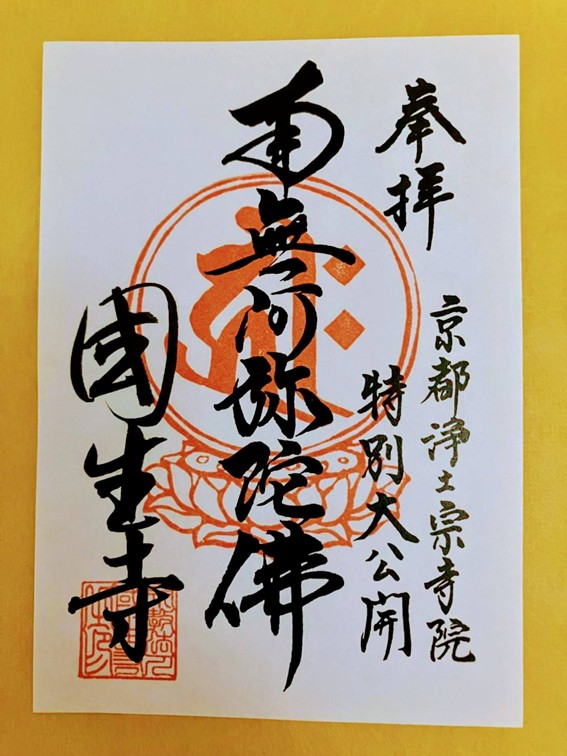 奉拝
京都浄土宗寺院
特別大公開
南無阿弥陀佛
國生寺